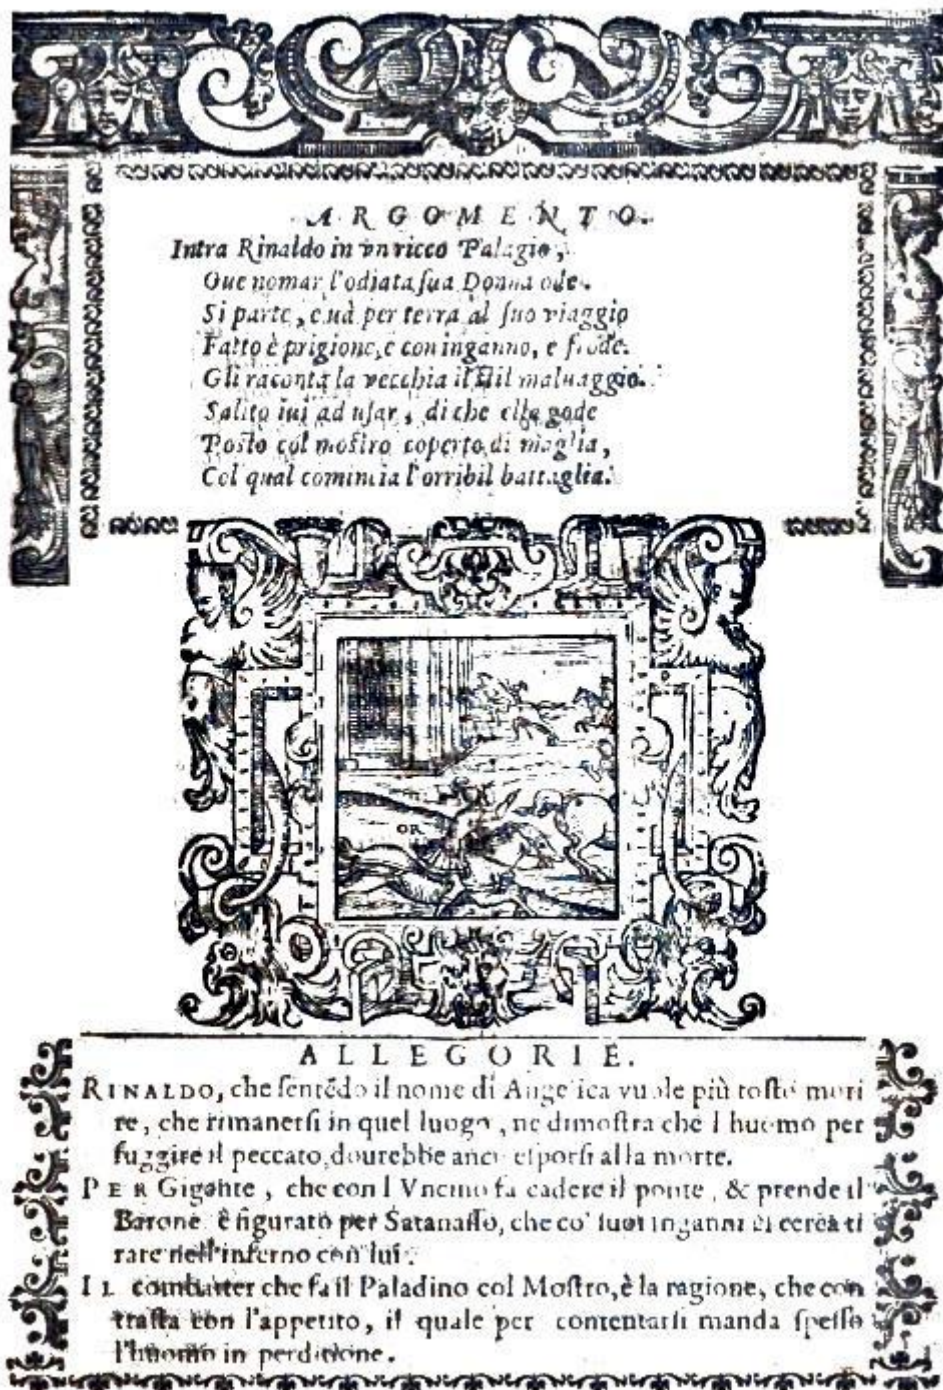 ARGOMENTO.
Intra Rinaldo in vn ricco Palagio,
Oue nomar l'odiata sua Donna ode.
Si parte, e uà per terra al suo viaggio
Fatto è prigione, e con inganno, e frode.
Gli raconta la vecchia il maluaggio.
Salito iui ad usar, di che ella gode
Posto col mostro coperto di maglia,
Col qual comincia l'orribil battaglia.
OR
ALLEGORIE.
RINALDO, che sentēdo il nome di Angelica vuole più tosto mori
re, che rimanersi in quel luogo, ne dimostra che l huomo per
fuggire il peccato, dourebbe anco esporsi alla morte.
PER Gigante, che con l Vncino fa cadere il ponte, & prende il
Barone è figurato per Satanasso, che co' suoi inganni ci cerca ti
rare nell'inferno con lui.
IL combatter che fa il Paladino col Mostro, è la ragione, che con
trasta con l'appetito, il quale per contentarsi manda spesso
l'huomo in perditione.